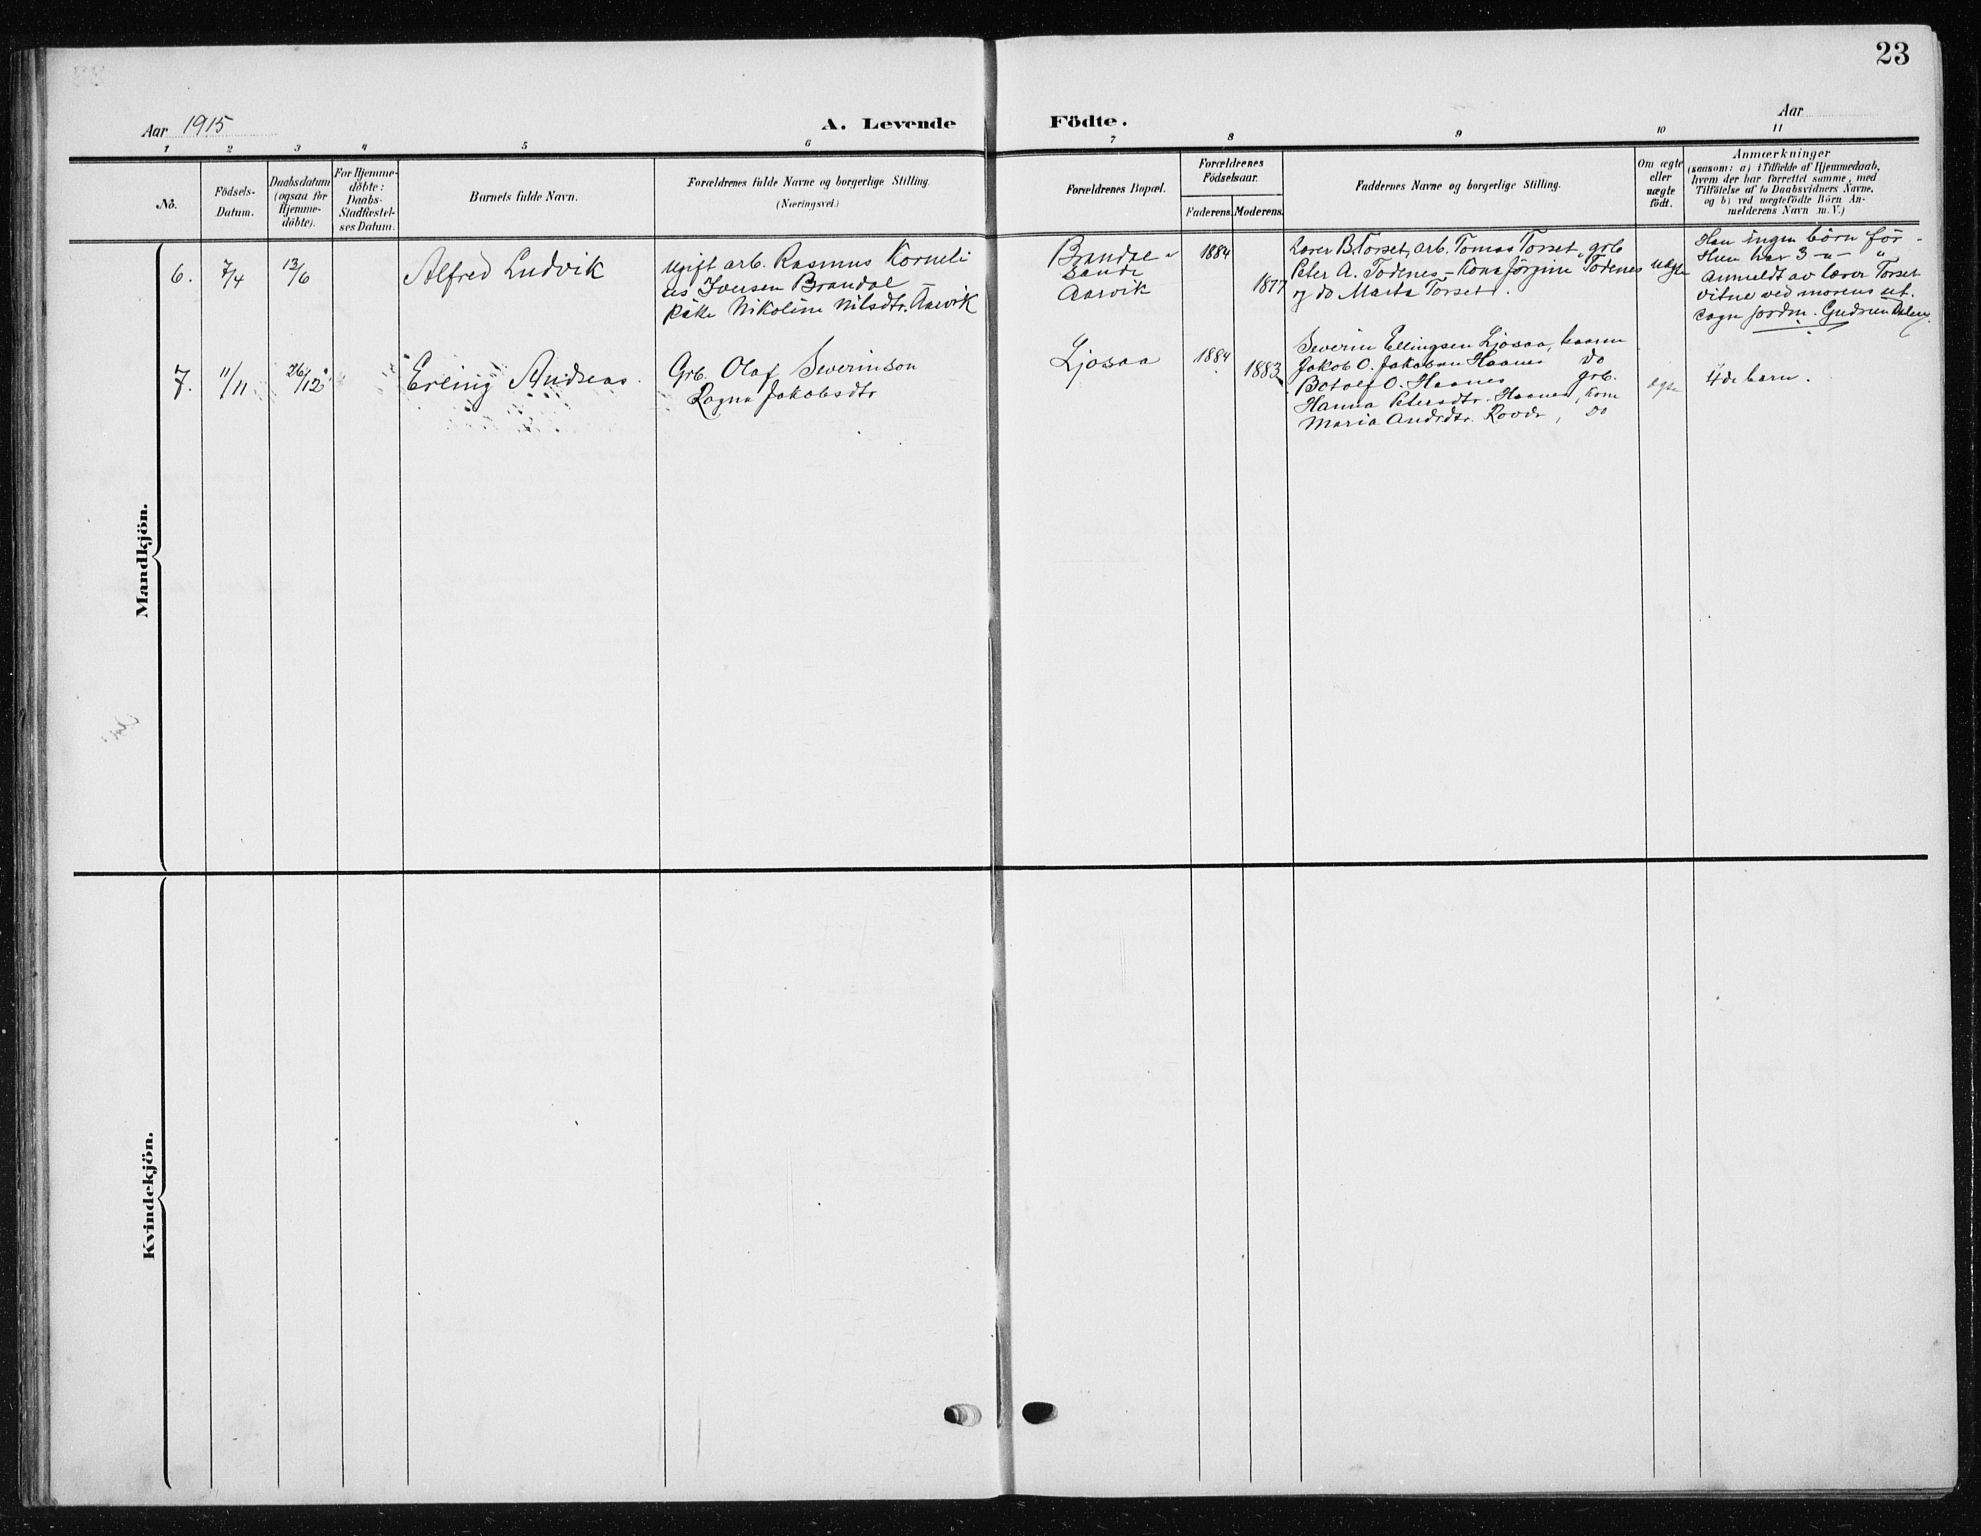 23
Aar 1915
A. Levende
Födte.
Aar
1 2 3 4 5 6 7 8 9 10 11
No.
Födsels-
Datum.
Daabsdatum
(ogsaa for
Hjemme-
döbte).
For Hjemme-
döbte:
Daabs-
Stadfæstel-
ses Datum.
Barnets fulde Navn.
Forældrenes fulde Navne og borgerlige Stilling.
(Næringsvei.)
Forældrenes Bopæl.
Forældrenes
Födselsaar.
Faderens.
Moderens.
Faddernes Navne og borgerlige Stilling.
Om ægte
eller
uægte
födt.
Anmærkninger
(saasom: a) i Tilfælde af Hjemmedaab,
hvem der har forrettet samme, med
Tilföielse af to Daabsvidners Navne,
og b) ved uægtefödte Börn An-
melderens Navn m. V.)
Mandkjön.
6.
7/4
13/6
Alfred Ludvik
Ugift arb. Rasmus Korneli
us Iversen Brandal
Pike Nikoline Nilsdtr. Aarvik
Brandal
Sande
Aarvik
1884
1877
Lærer B. Torset, arb. Tomas Torset, grb
Peter A. Todenes – Kona Jørgine Todenes
og do Marta Torset.
uægte
Han ingen børn før -
Hun har 3 - " - "
Anmeldt av lærer Torset
vitne ved morens ut-
sagn jordm. Gudrun
7.
11/11
26/12
Erling Andreas.
Grb. Olaf Severinson
Ragna Jakobsdtr
Ljosaa
1884
1883
Severin Ellingsen Ljosaa, kaarm
Jakob O. Jakobsen Haanes do
Botolf O. Haanes grb.
Hanna Petersdtr. Haanes, kone
Maria Andrdtr. Rovde, do
ægte
4de barn.
Kvindekjön.